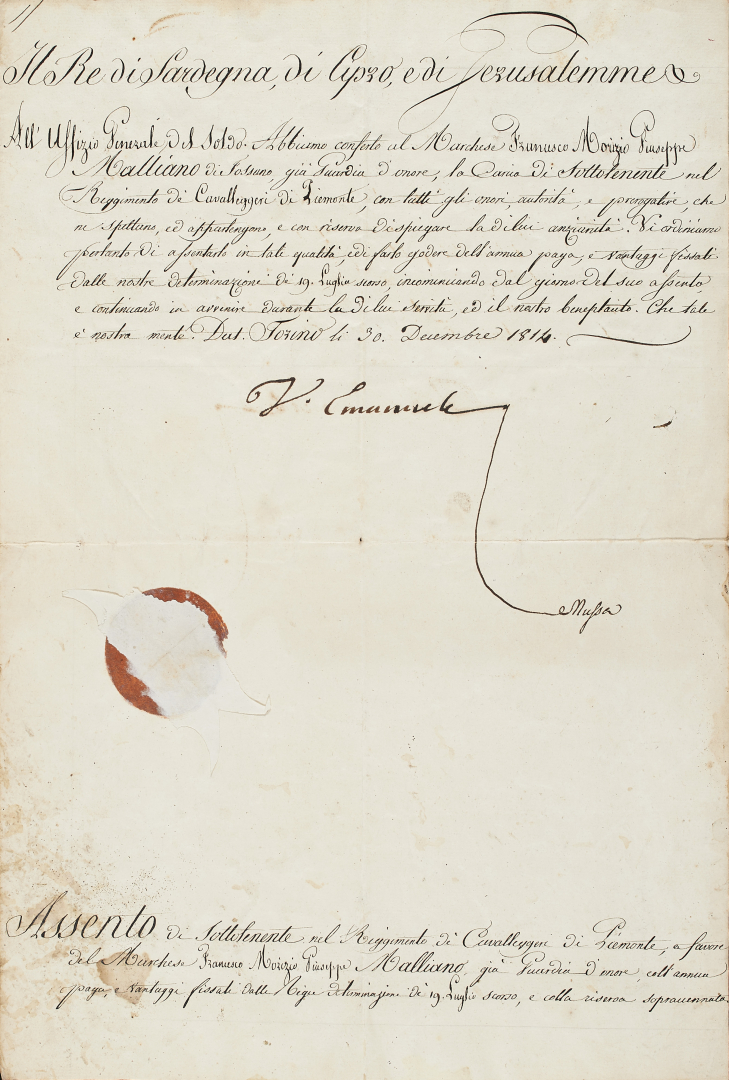 Il Re di Sardegna, di Cipro, e di Jerusalemme &
All' Uffizio Generale del Soldo. Abbiamo conferto al Marchese Francesco Morizio Giuseppe
Malliano di Fossano, già Guardia d'onore, la Carica di Sottotenente nel
Reggimento de' Cavalleggeri di Piemonte, con tutti gli onori, autorità, e prerogative che
ne spettano, ed appartengono, e con riserva di spiegare la di lui anzianità. Vi ordiniamo
pertanto di assentarlo in tale qualità, e di farlo godere dell'annua paga, e vantaggi fissati
dalle nostre determinazioni de' 19. Luglio scorso, incominciando dal giorno del suo assento
e continuando in avvenire durante la di lui servitù, ed il nostro beneplacito. Che tale
è nostra mente. Dat. Torino li 30. Decembre 1814.
V. Emanuele
Assento di Sottotenente nel Reggimento de' Cavalleggeri di Piemonte, a favore
del Marchese Francesco Morizio Giuseppe Malliano, già Guardia d'onore, coll'annua
paga, e vantaggi fissati dalle Regie determinazioni de' 19. Luglio scorso, e colla riserva sopraccennata.